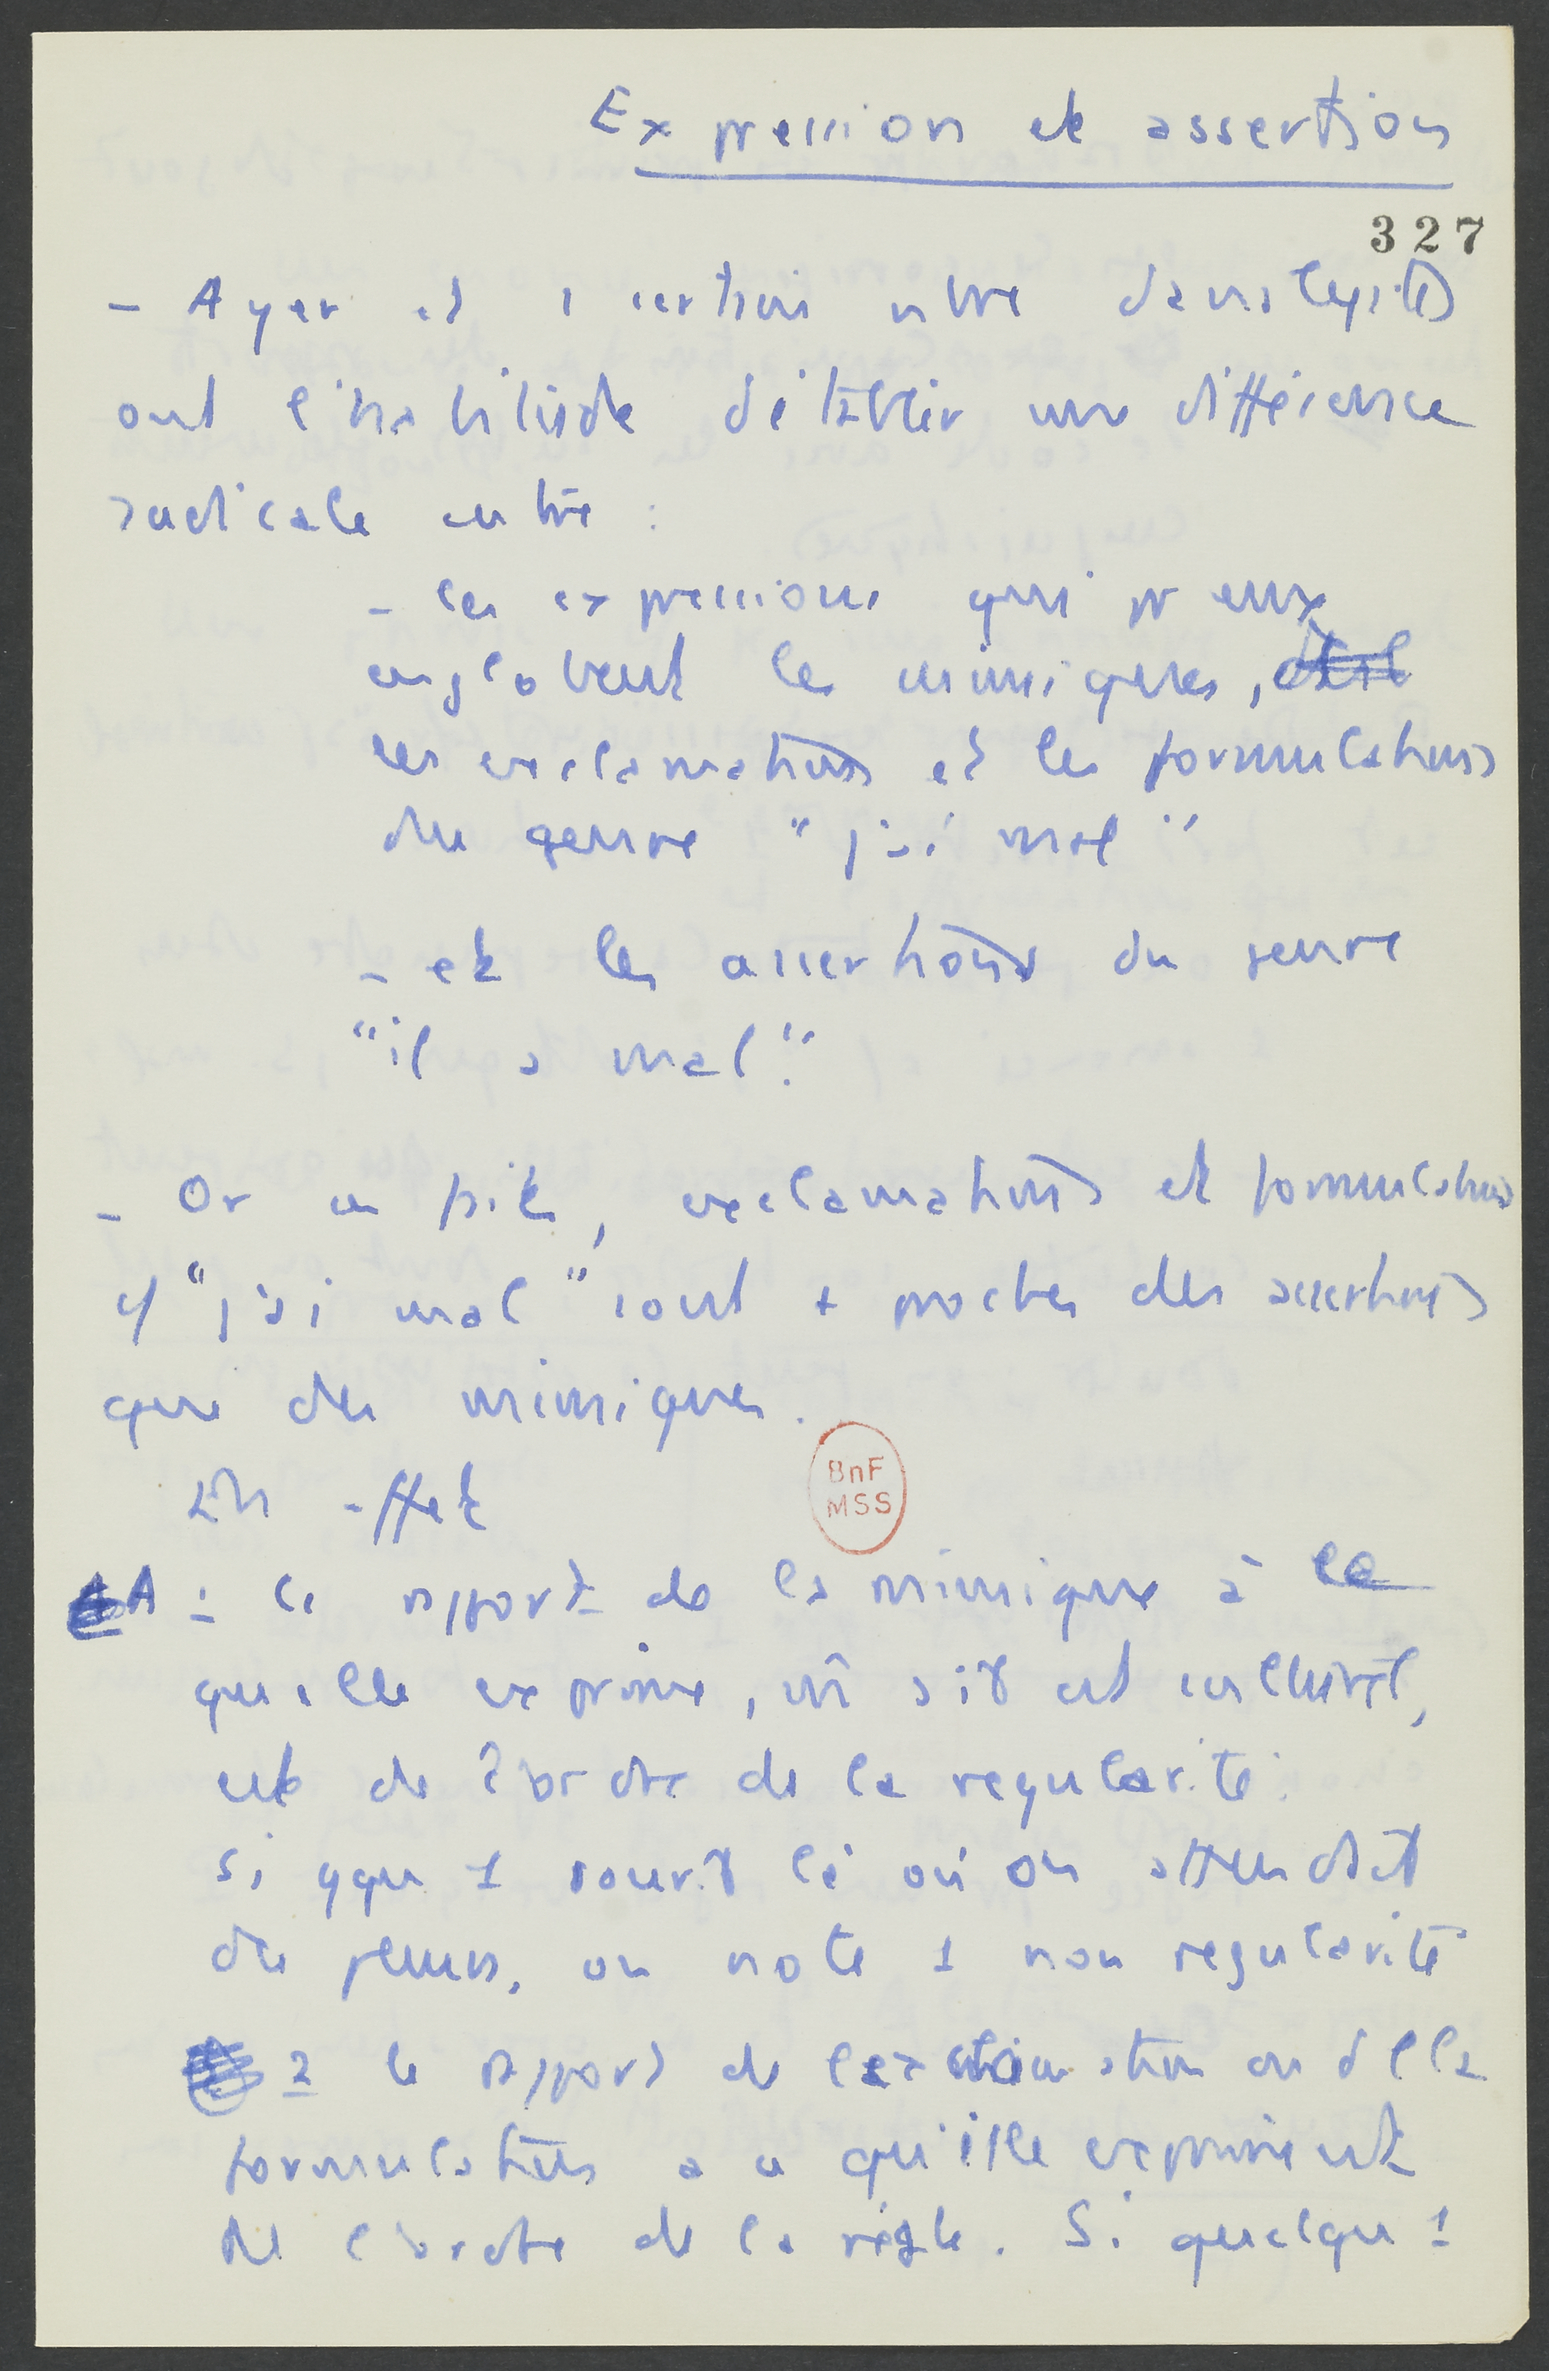 Expression et assertion
327
- Ayer et 1 certain nbre d'analystes
ont l'habitude d'établir une différence
radicale entre :
- les expressions qui pr eux
englobent les mimiques,
les exclamations et les formulations
du genre "j'ai mal"
- et les assertions du genre
"il a mal".
- Or en fait, exclamations et formulations
cf "j'ai mal" sont + proches des assertions
que des mimiques.
En effet
A 1 le rapport de la mimique à ce
qu'elle exprime, m̂ s'il est culturel,
est de l'ordre de la régularité.
Si qqu 1 sourit là où on attendait
des pleurs, on note 1 non régularité
2 le rapport de l'exclamation ou d'la
formulation à ce qu'elle exprime est
de l'ordre de la règle. Si quelqu 1
BnF
MSS